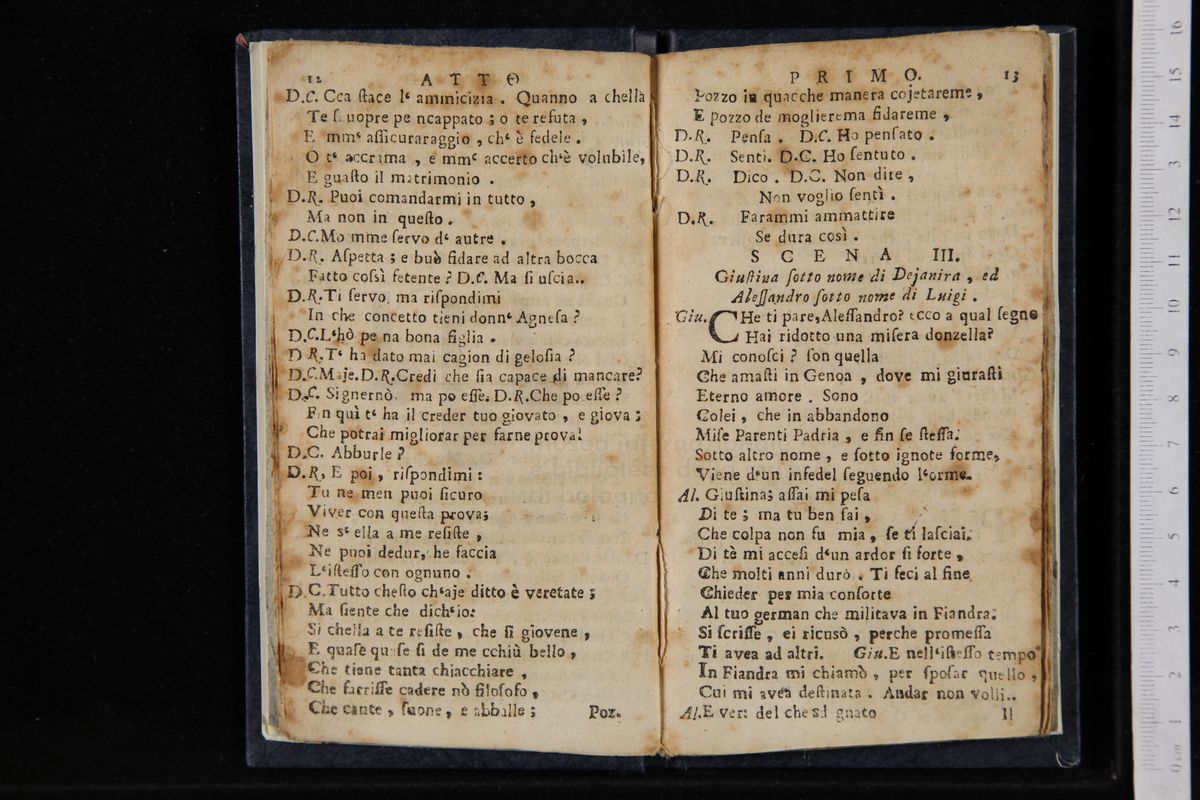 12 ATTO
D.C. Cca ſtace l‘ ammicizia . Quanno a chella
Te ſcuopre pe ncappato ; o te refuta ,
E mm‘ aſſicuraraggio , ch‘ è fedele .
O t‘ accrima , e mm‘ accerto ch‘è volubile,
E guaſto il matrimonio .
D.R. Puoi comandarmi in tutto ,
Ma non in queſto .
D.C.Mo mme ſervo d‘ autre .
D.R. Aſpetta ; e buò fidare ad altra bocca
Fatto coſsì fetente ? D.C. Ma ſi uſcia..
D.R.Ti ſervo, ma riſpondimi
In che concetto tieni donn‘ Agneſa ?
D.C.L‘hò pe na bona figlia .
D R.T‘ ha dato mai cagion di geloſia ?
D.C.Maje.D.R.Credi che ſia capace di mancare?
D.C. Signernò, ma po eſſe. D.R.Che po eſſe ?
Fin quì t‘ ha il creder tuo giovato , e giova ;
Che potrai migliorar per farne prova!
D.C. Abburle ?
D.R, E poi , riſpondimi :
Tu ne men puoi ſicuro
Viver con queſta prova;
Ne s‘ ella a me reſiſte ,
Ne puoi dedur, che faccia
L‘iſteſſo con ognuno .
D.C.Tutto cheſto ch‘aje ditto è veretate ;
Ma ſiente che dich‘io:
Si chella a te reſiſte , che ſi giovene ,
E quaſe quaſe ſi de me cchiù bello ,
Che tiene tanta chiacchiare ,
Che farriſſe cadere nò filoſofo ,
Che cante , ſuone , e abballe ; Poz.
PRIMO. 13
Pozzo in quacche manera cojetareme ,
E pozzo de moglierema fidareme ,
D.R. Penſa . D.C. Ho penſato .
D.R. Senti. D.C. Ho ſentuto .
D.R. Dico . D.C. Non dire ,
Non voglio ſentì .
D.R. Farammi ammattire
Se dura così .
SCENA III.
Giuſtina ſotto nome di Dejanira , ed
Aleſſandro ſotto nome di Luigi .
Giu. CHe ti pare,Aleſſandro? ecco a qual ſegno
Hai ridotto una miſera donzella?
Mi conoſci ? ſon quella
Che amaſti in Genoa , dove mi giuraſti
Eterno amore . Sono
Colei , che in abbandono
Miſe Parenti Padria , e fin ſe ſteſſa.
Sotto altro nome , e ſotto ignote forme,
Viene d‘un infedel ſeguendo l‘orme.
Al. Giuſtina; aſſai mi peſa
Di te ; ma tu ben ſai ,
Che colpa non fu mia , ſe ti laſciai.
Di tè mi acceſi d‘un ardor ſi forte ,
Che molti anni durò . Ti feci al fine
Chieder per mia conſorte
Al tuo german che militava in Fiandra.
Si ſcriſſe , ei ricusò , perche promeſſa
Ti avea ad altri. Giu.E nell‘iſteſſo tempo
In Fiandra mi chiamò , per ſpoſar quello ,
Cui mi avea deſtinata . Andar non volli..
Al.E ver: del che sdegnato Il